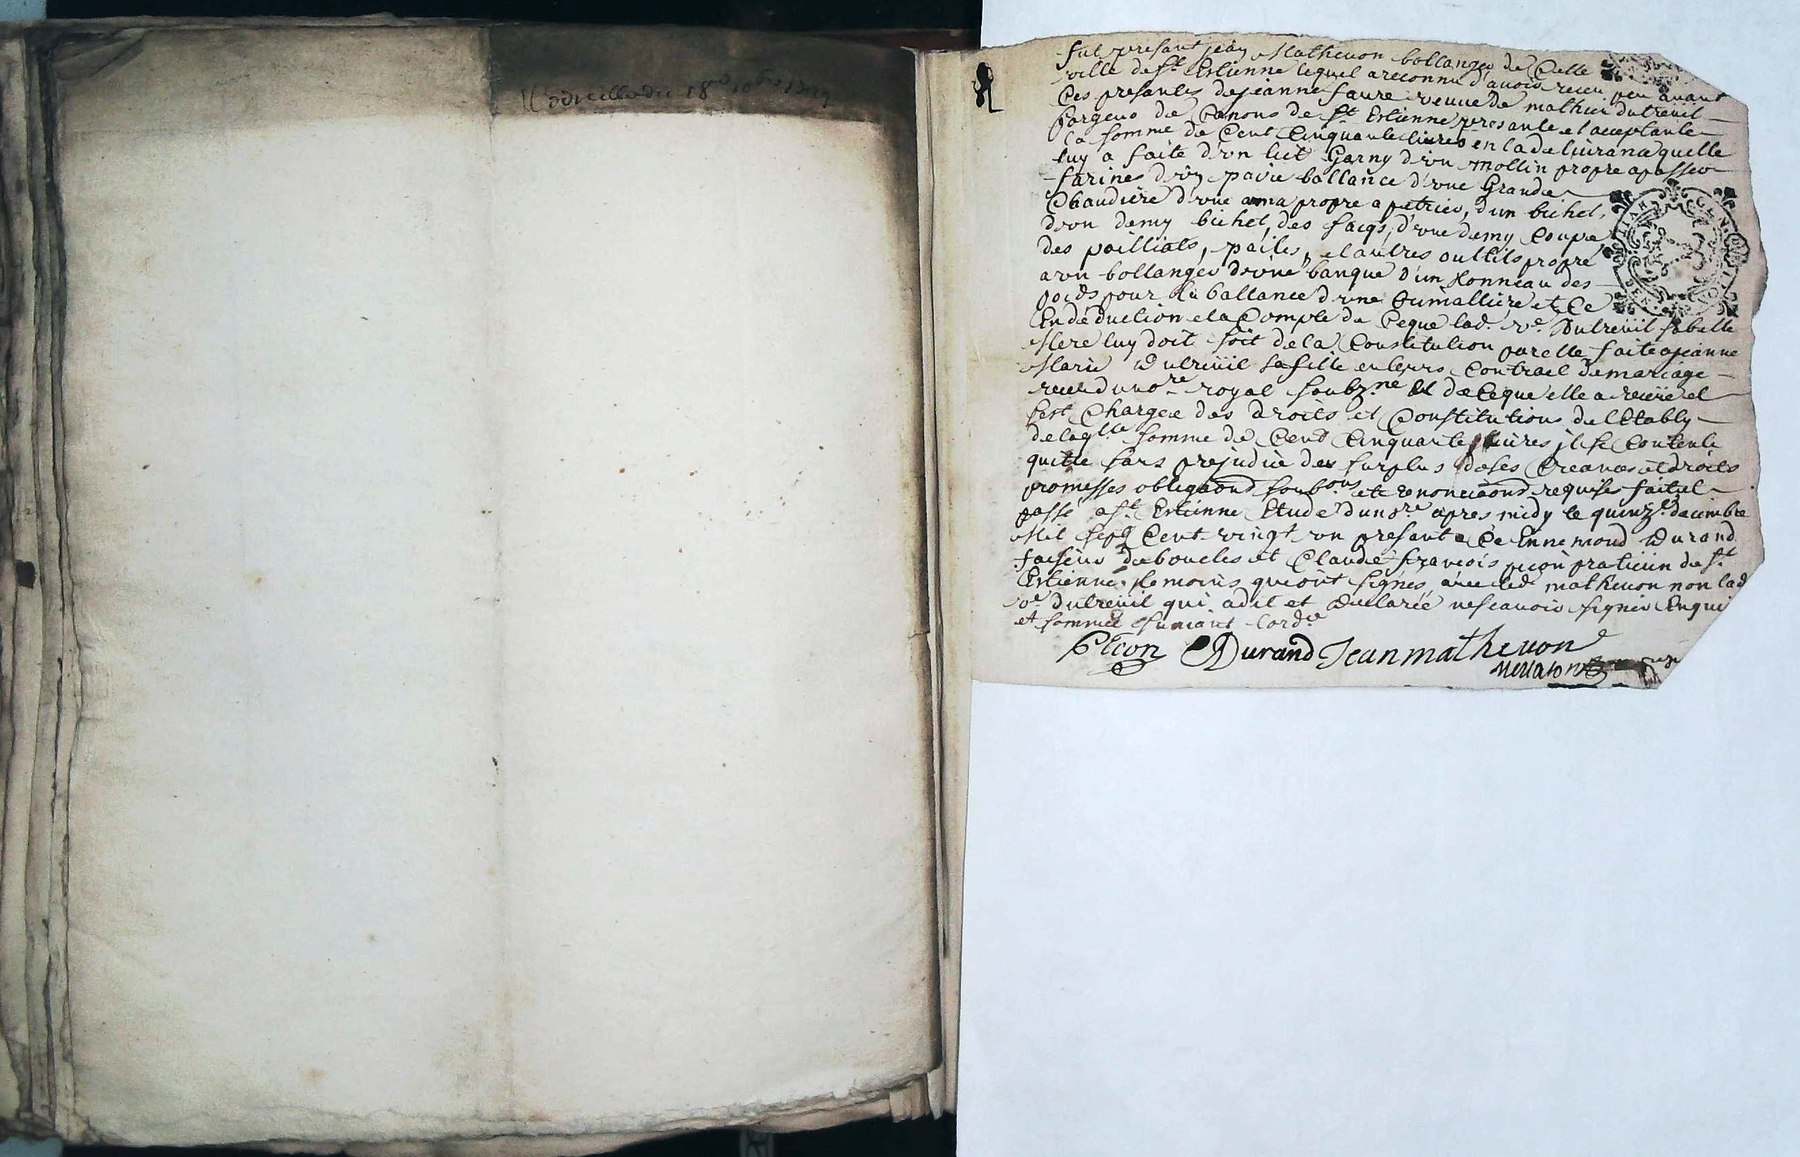 18e xbre 1719
fut presant jean Mathevon bollanger de Cette
ville de St Estienne lequel a reconnu d'avoir receu peu avant
Ces presantes de jeanne faure veuve de mathieu dutreüil
forgeur de Canons de St Estienne presante et acceptante
la somme de Cent Cinquante livres en la delivrance quelle
luy a faite d'un lict Garny d'un mollin propre a passer
farines d'un paire ballance d'une Grande
Chaudiere d'une ama propre a petrier, d'un bichet,
d'un demy bichet, des sacqs, d'une demy Coupe
des pailliats, pailes, et autres outtils propre
a un bollanger d'une banque d'un tonneau des
poids pour la ballance d'une Cumalliere et Ce
En déduction et a Compte de Ceque lad. ve. Dutreüil sa belle
Mere luy doit soit de la Constitution par elle faite a jeanne
Marie Dutreüil sa fille en leurs Contract de mariage
receu du nore royal soubz.ne et de Ceque elle a retiré et
s'est Chargée des droits et Constitutions de l'Etably
de laqlle somme de Cent Cinquante livres il se Contente
quitte sans prejudice du surplus de ses Creances et droits
promesses obligaons soub.ons et renonciaons requises fait et
passé a St Estienne Etude du nore apres midy le quinze decembre
Mil sept Cent vingt un presant Ce Ennemond Durand
faiseur de boucles et Claude françois pleon praticien de St
Estienne temoins qui ont signés avec led mathevon non lad
ve dutreüil qui a dit et declarée ne scavoir signer Enquise
et sommée suivant l'ord.e
Pleon Durand Jean mathevon